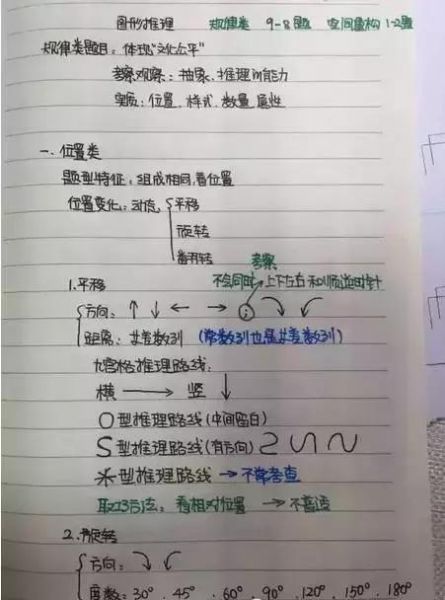 图形推理 规律类 9-8题 空间重构 1-2题
规律类题目：体现"文化公平"
考察观察：抽象、推理的能力
实质：位置、样式、数量、属性
一.位置类
题型特征：组成相同,看位置
位置变化：动点 { 平移
旋转
翻转
考察
1.平移 不会同时 上下左右和顺逆时针
{ 方向：↑ ↓ ← → ;
距离：等差数列 (常数列也是等差数列)
九宫格推理路线：
横 → 竖 ↓
O型推理路线(中间留白)
S型推理路线(有方向)
米型推理路线 →不常考查
取巧方法：看相对位置 →不普适
2.旋转
{ 方向：
度数：30°、45°、60°、90°、120°、150°、180°